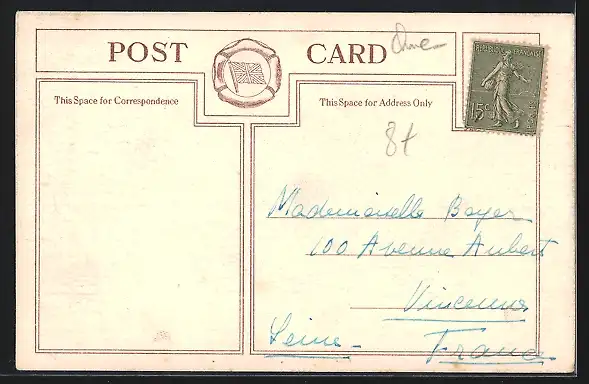 POST CARD
RÉPUBLIQUE FRANÇAISE
15c
This Space for Correspondence
This Space for Address Only
84
Mademoiselle Boyer
100 Avenue Aubert
Vincennes
Seine
France